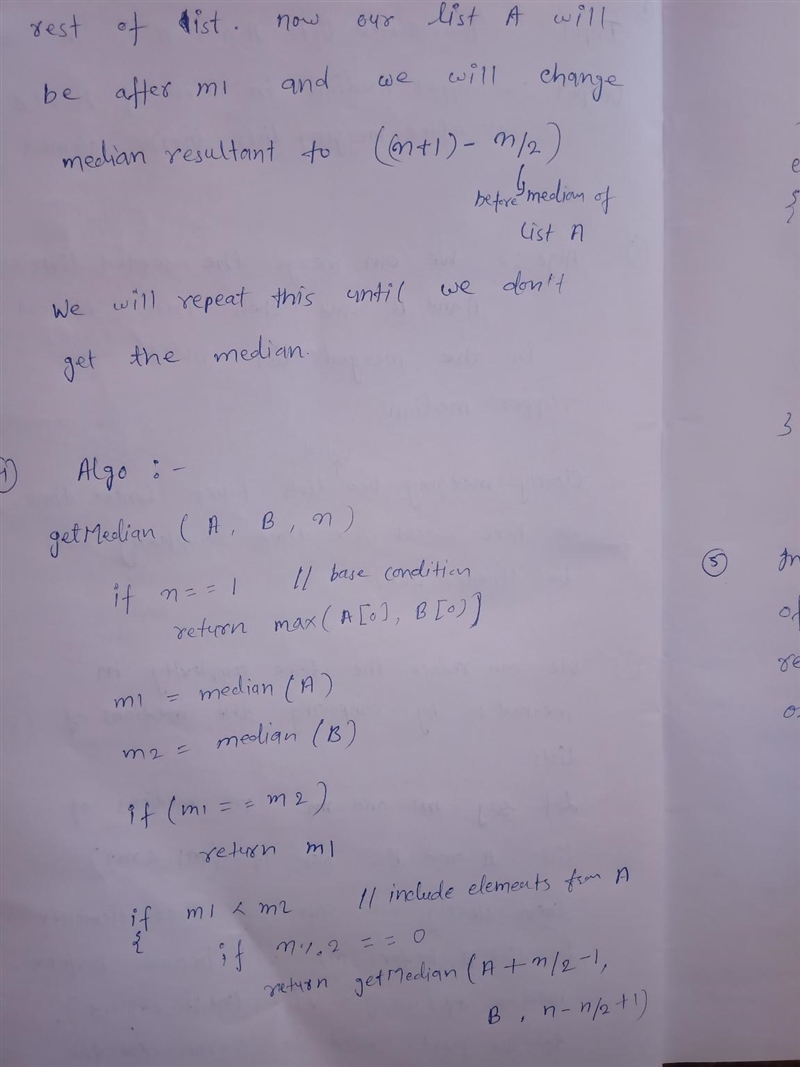 rest of list. now our list A will
be after m1 and we will change
median resultant to ((n+1) - n/2)
before median of
list A
We will repeat this until we don't
get the median.
Algo :-
getMedian ( A, B, n )
if n == 1 // base condition
return max( A[0], B[0)]
m1 = median (A)
m2 = median (B)
if (m1 == m2)
return m1
if m1 < m2 // include elements from A
{ if n%2 == 0
return getMedian (A + n/2 - 1,
B, n - n/2 + 1)
e
}
5
of
re